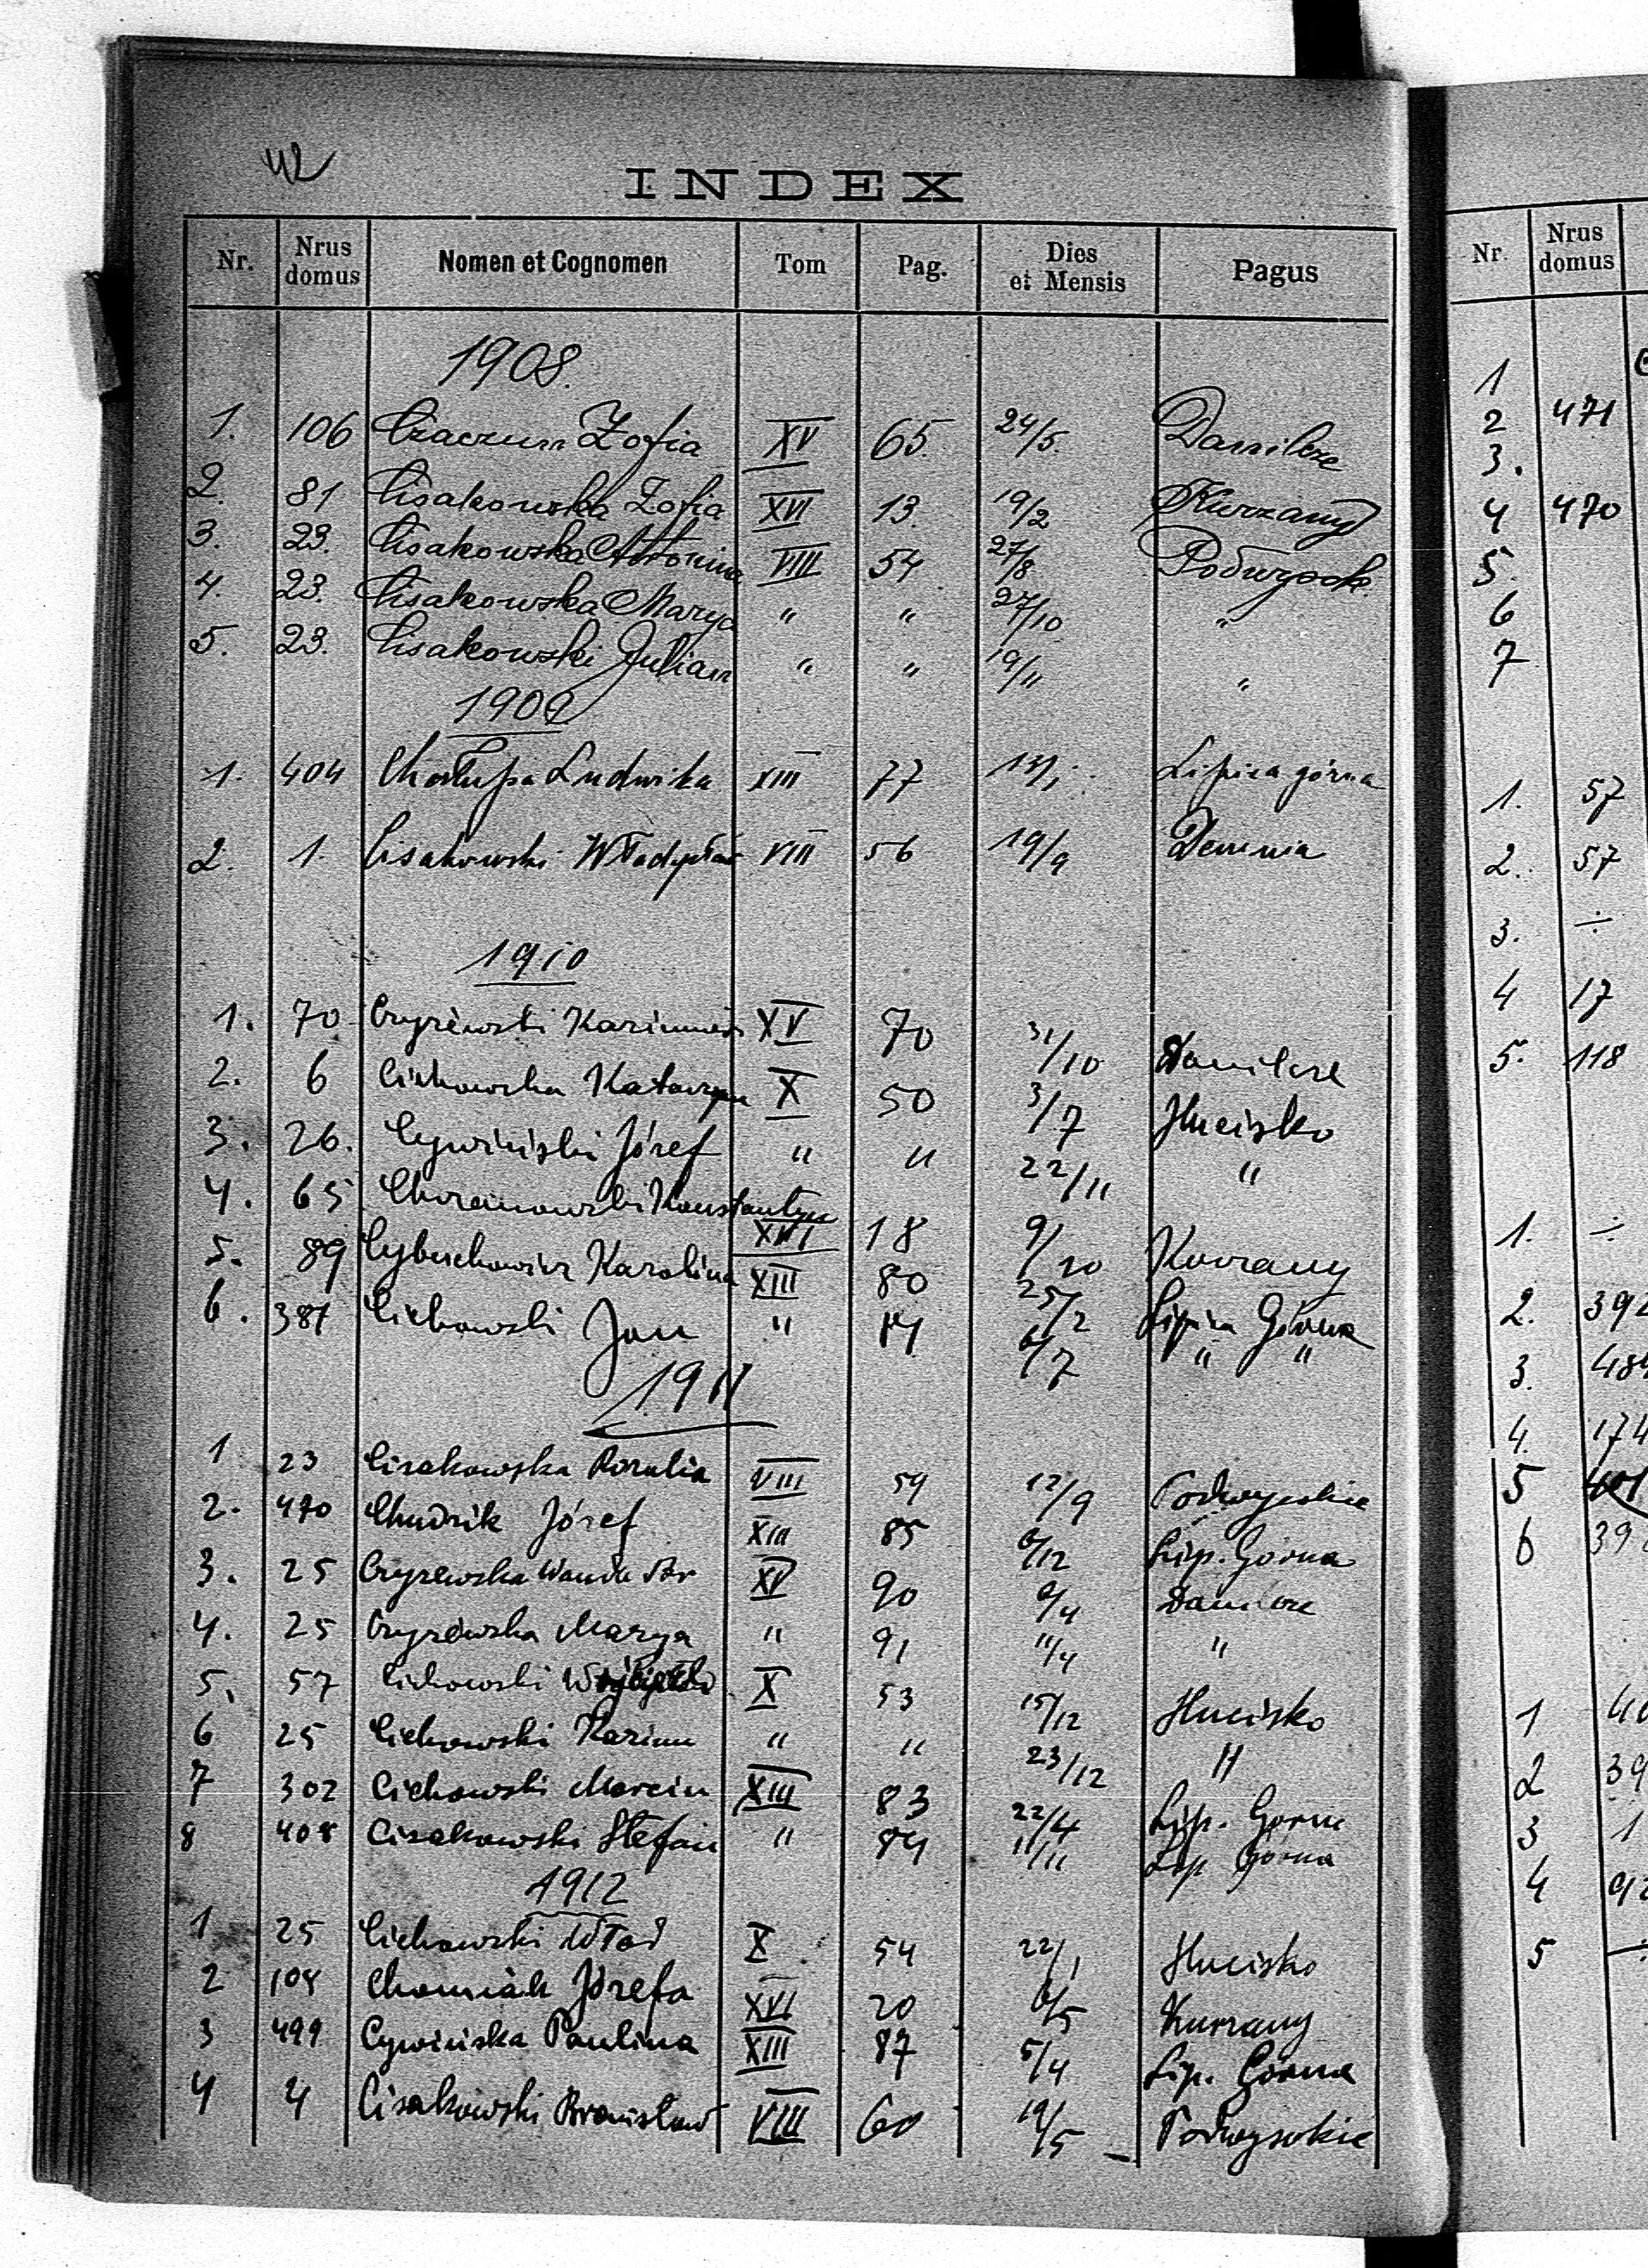 42
INDEX
Nr. Nrus domus Nomen et Cognomen Tom Pag. Dies et Mensis Pagus
1908.
1. 106 Czaczun Zofia XV 65. 24/5. Danilcze
2. 81 Cisakowska Zofia XVI 13. 19/2 Kurzany
3. 23. Cisakowska Antonina VIII 54 27/8 Podwysok.
4. 23. Cisakowska Marya " " 27/10 "
5. 23. Cisakowski Julian " " 19/11 "
1909
1. 404 Chałupa Ludwika XIII 77 13/1. Lipica górna
2. 1. Cisakowski Władysław VIII 56 19/9 Demnia
1910
1. 70 Czyżewski Kazimierz XV 70 31/10 Danilcze
2. 6 Cichowska Katarzyna X 50 3/7 Hucisko
3. 26. Cywiński Józef " " 22/11 "
4. 65 Konstantyn XVI 18 9/10 Kurzany
5. 89 Cybuchowicz Karolina XIII 80 25/2 Lipica Górna
6. 387 Cichowski Jan " 6/7 " "
1911
1 23 Cisakowska Rozalia VIII 59 12/9 Podwysokie
2. 470 Chudzik Józef XIII 85 6/12 Lip. Górna
3. 25 Czyżewska Wanda XV 90 Danilcze
4. 25 Czyżewska Marya " 91 11/4 "
5. 57 Cichowski X 53 15/12 Hucisko
6 25 Cichowski Kazim " " 23/12 "
7 302 Cichowski Marcin XIII 83 22/4 Lip. Górna
8 408 Cisakowski Stefan " 84 11/11 Lip Górna
1912
1 25 Cichowski Wład X 54 22/1 Hucisko
2 108 Chomiak Józefa XVI 20 6/5 Kurzany
3 499 Cywińska Paulina XIII 87 5/4 Lip. Górna
4 4 Cisakowski Bronisław VIII 60 19/5 Podwysokie
Nr. Nrus domus
1
2 471
3.
4 470
5.
6
7
1. 57
2. 57
3. ÷
4 17
5. 118
1. ÷
2. 392
3. 484
4. 174
5
6 39
1
2 39
3 1
4 92
5